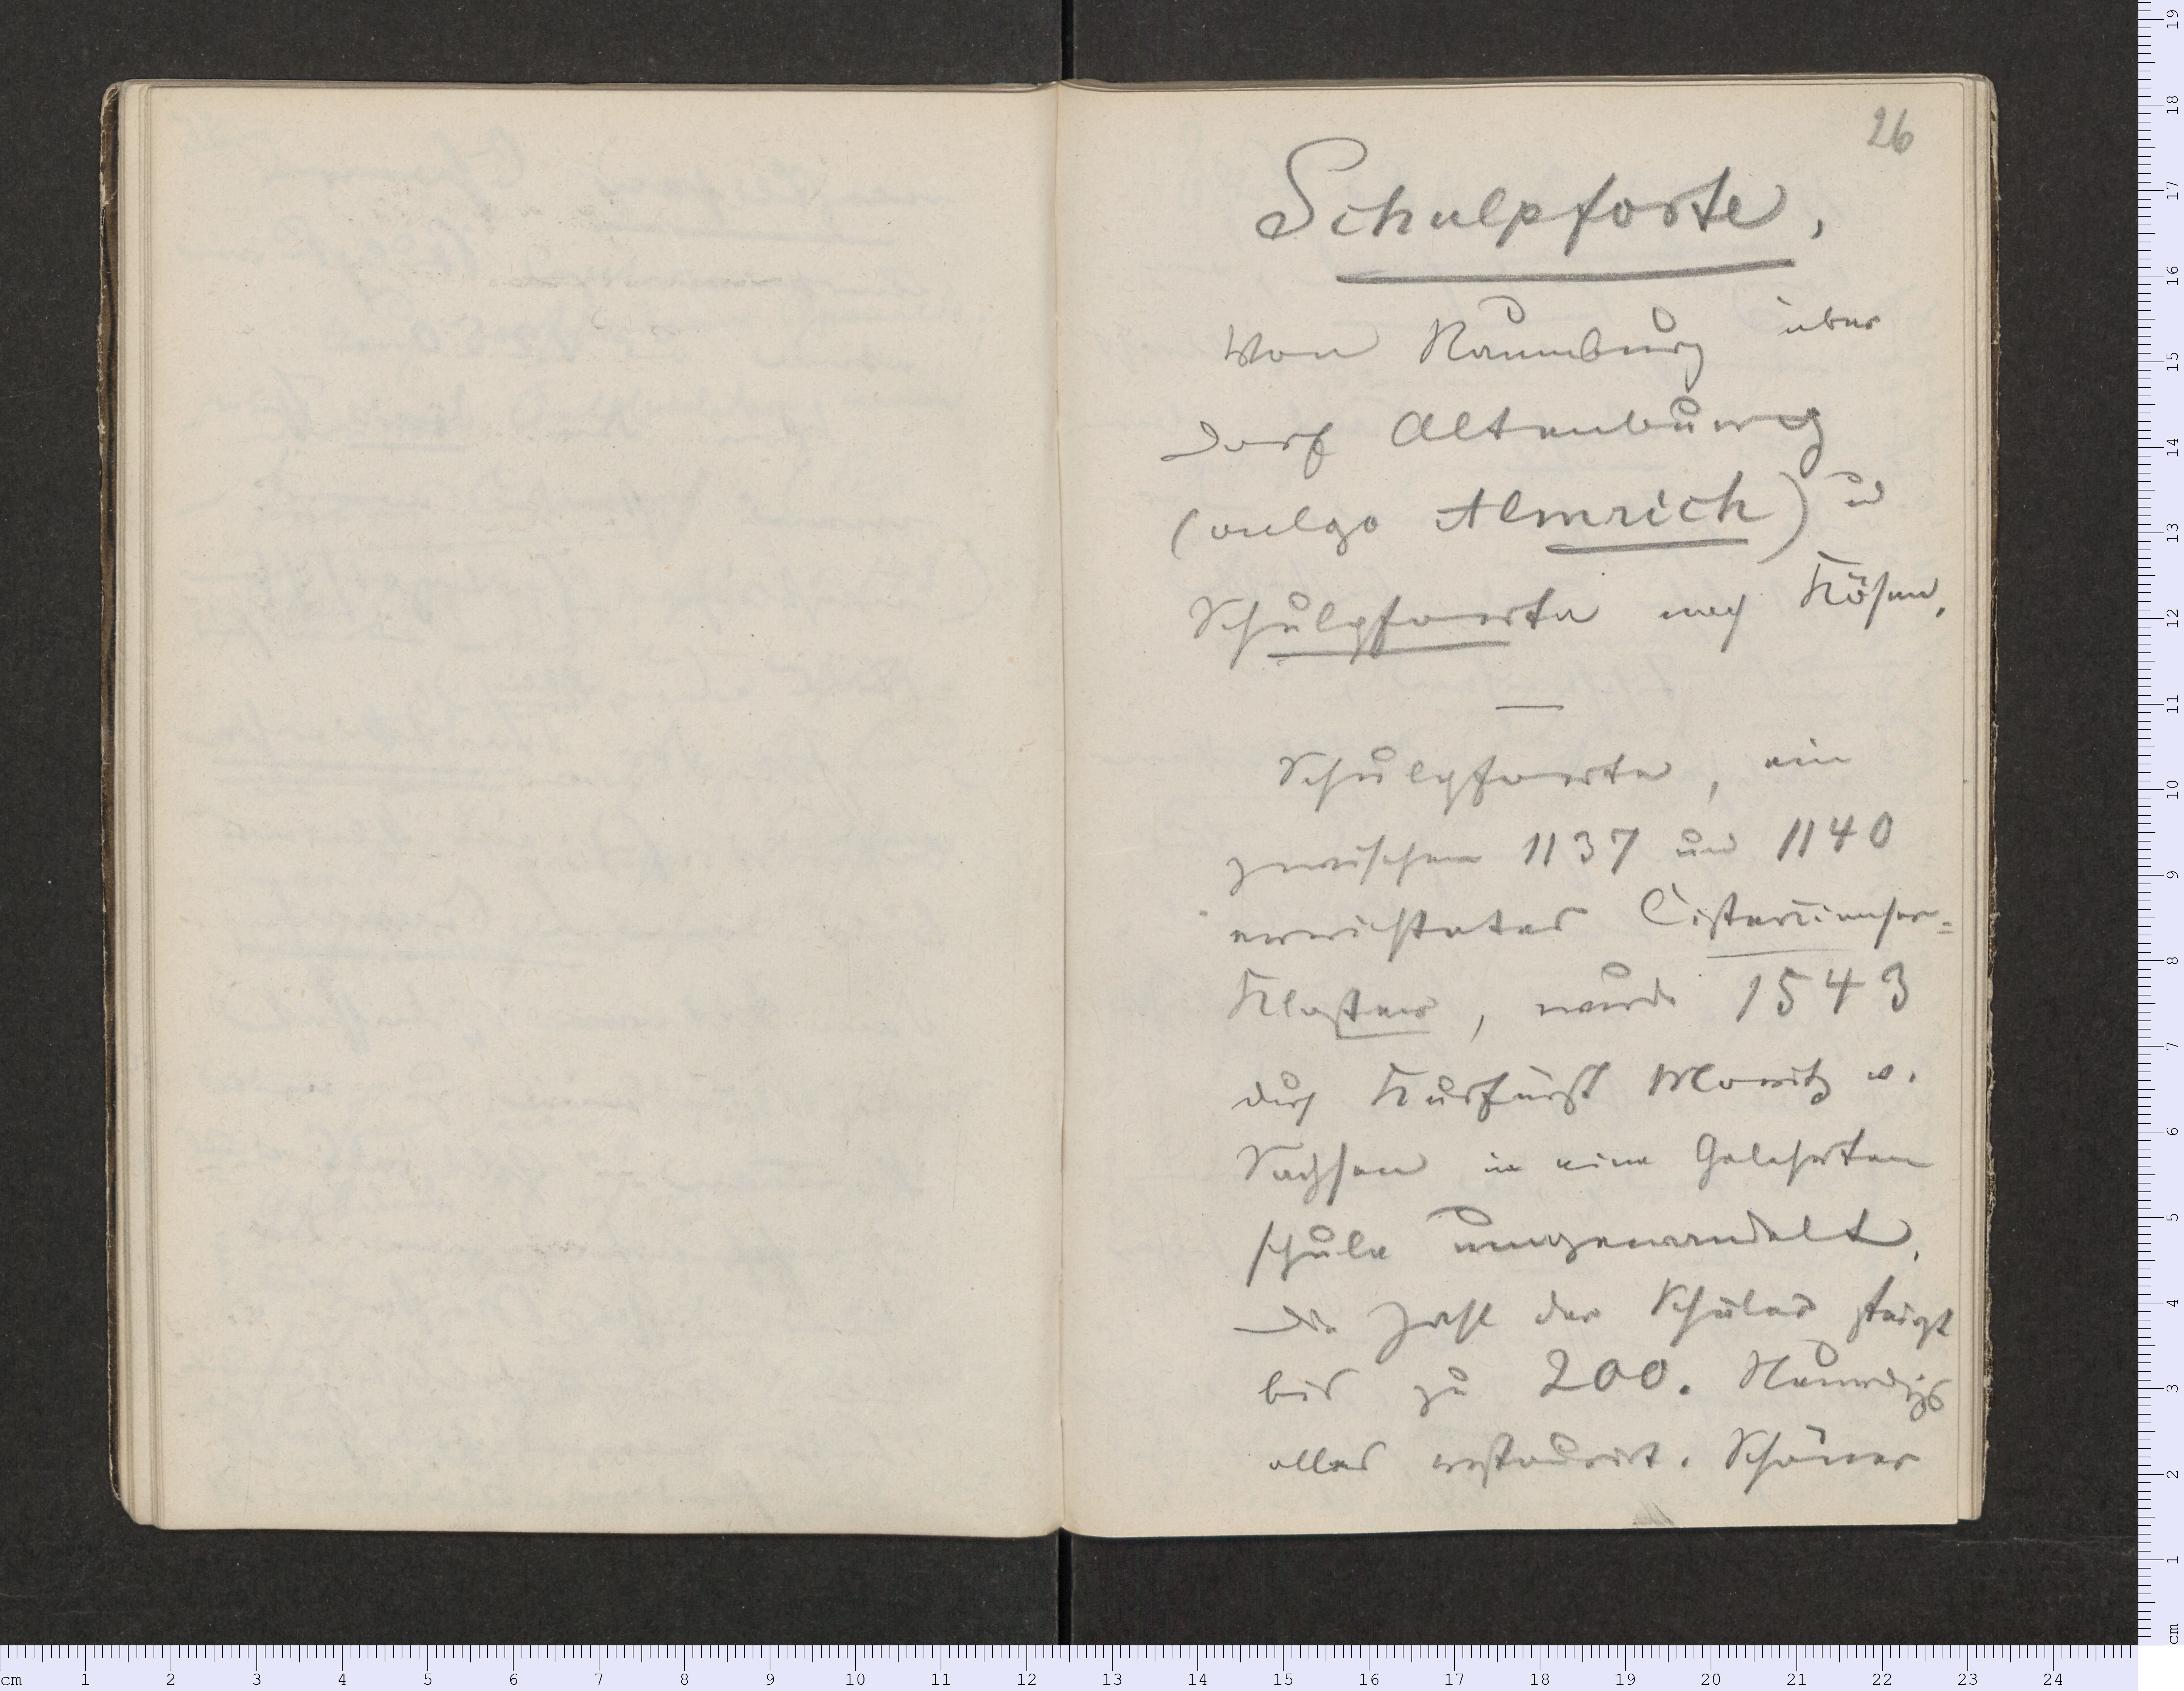 26
Schulpforte.
Von Naumburg über
Dorf Altenburg
(vulgo Almrich) u
Schulpforta nach Kösen.
—
Schulpforta, ein
zwischen 1137 und 1140
errichtetes Cistercienser-
Kloster, wurde 1543
durch Kurfürst Moritz v.
Sachsen in eine Gelehrten
schule umgewandelt.
Die Zahl der Schüler steigt
bis zu 200. Neuerdings
alles restaurirt. Schöner